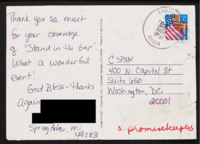 Thank you so much
for your coverage
of "Stand in the Gap".
What a wonderful
event!
God Bless - thanks
Again
Springlake, mi
49286
C-SPAN
400 N. Capitol St
Suite 650
Washington, D.C.
20001
a. promisekeeples